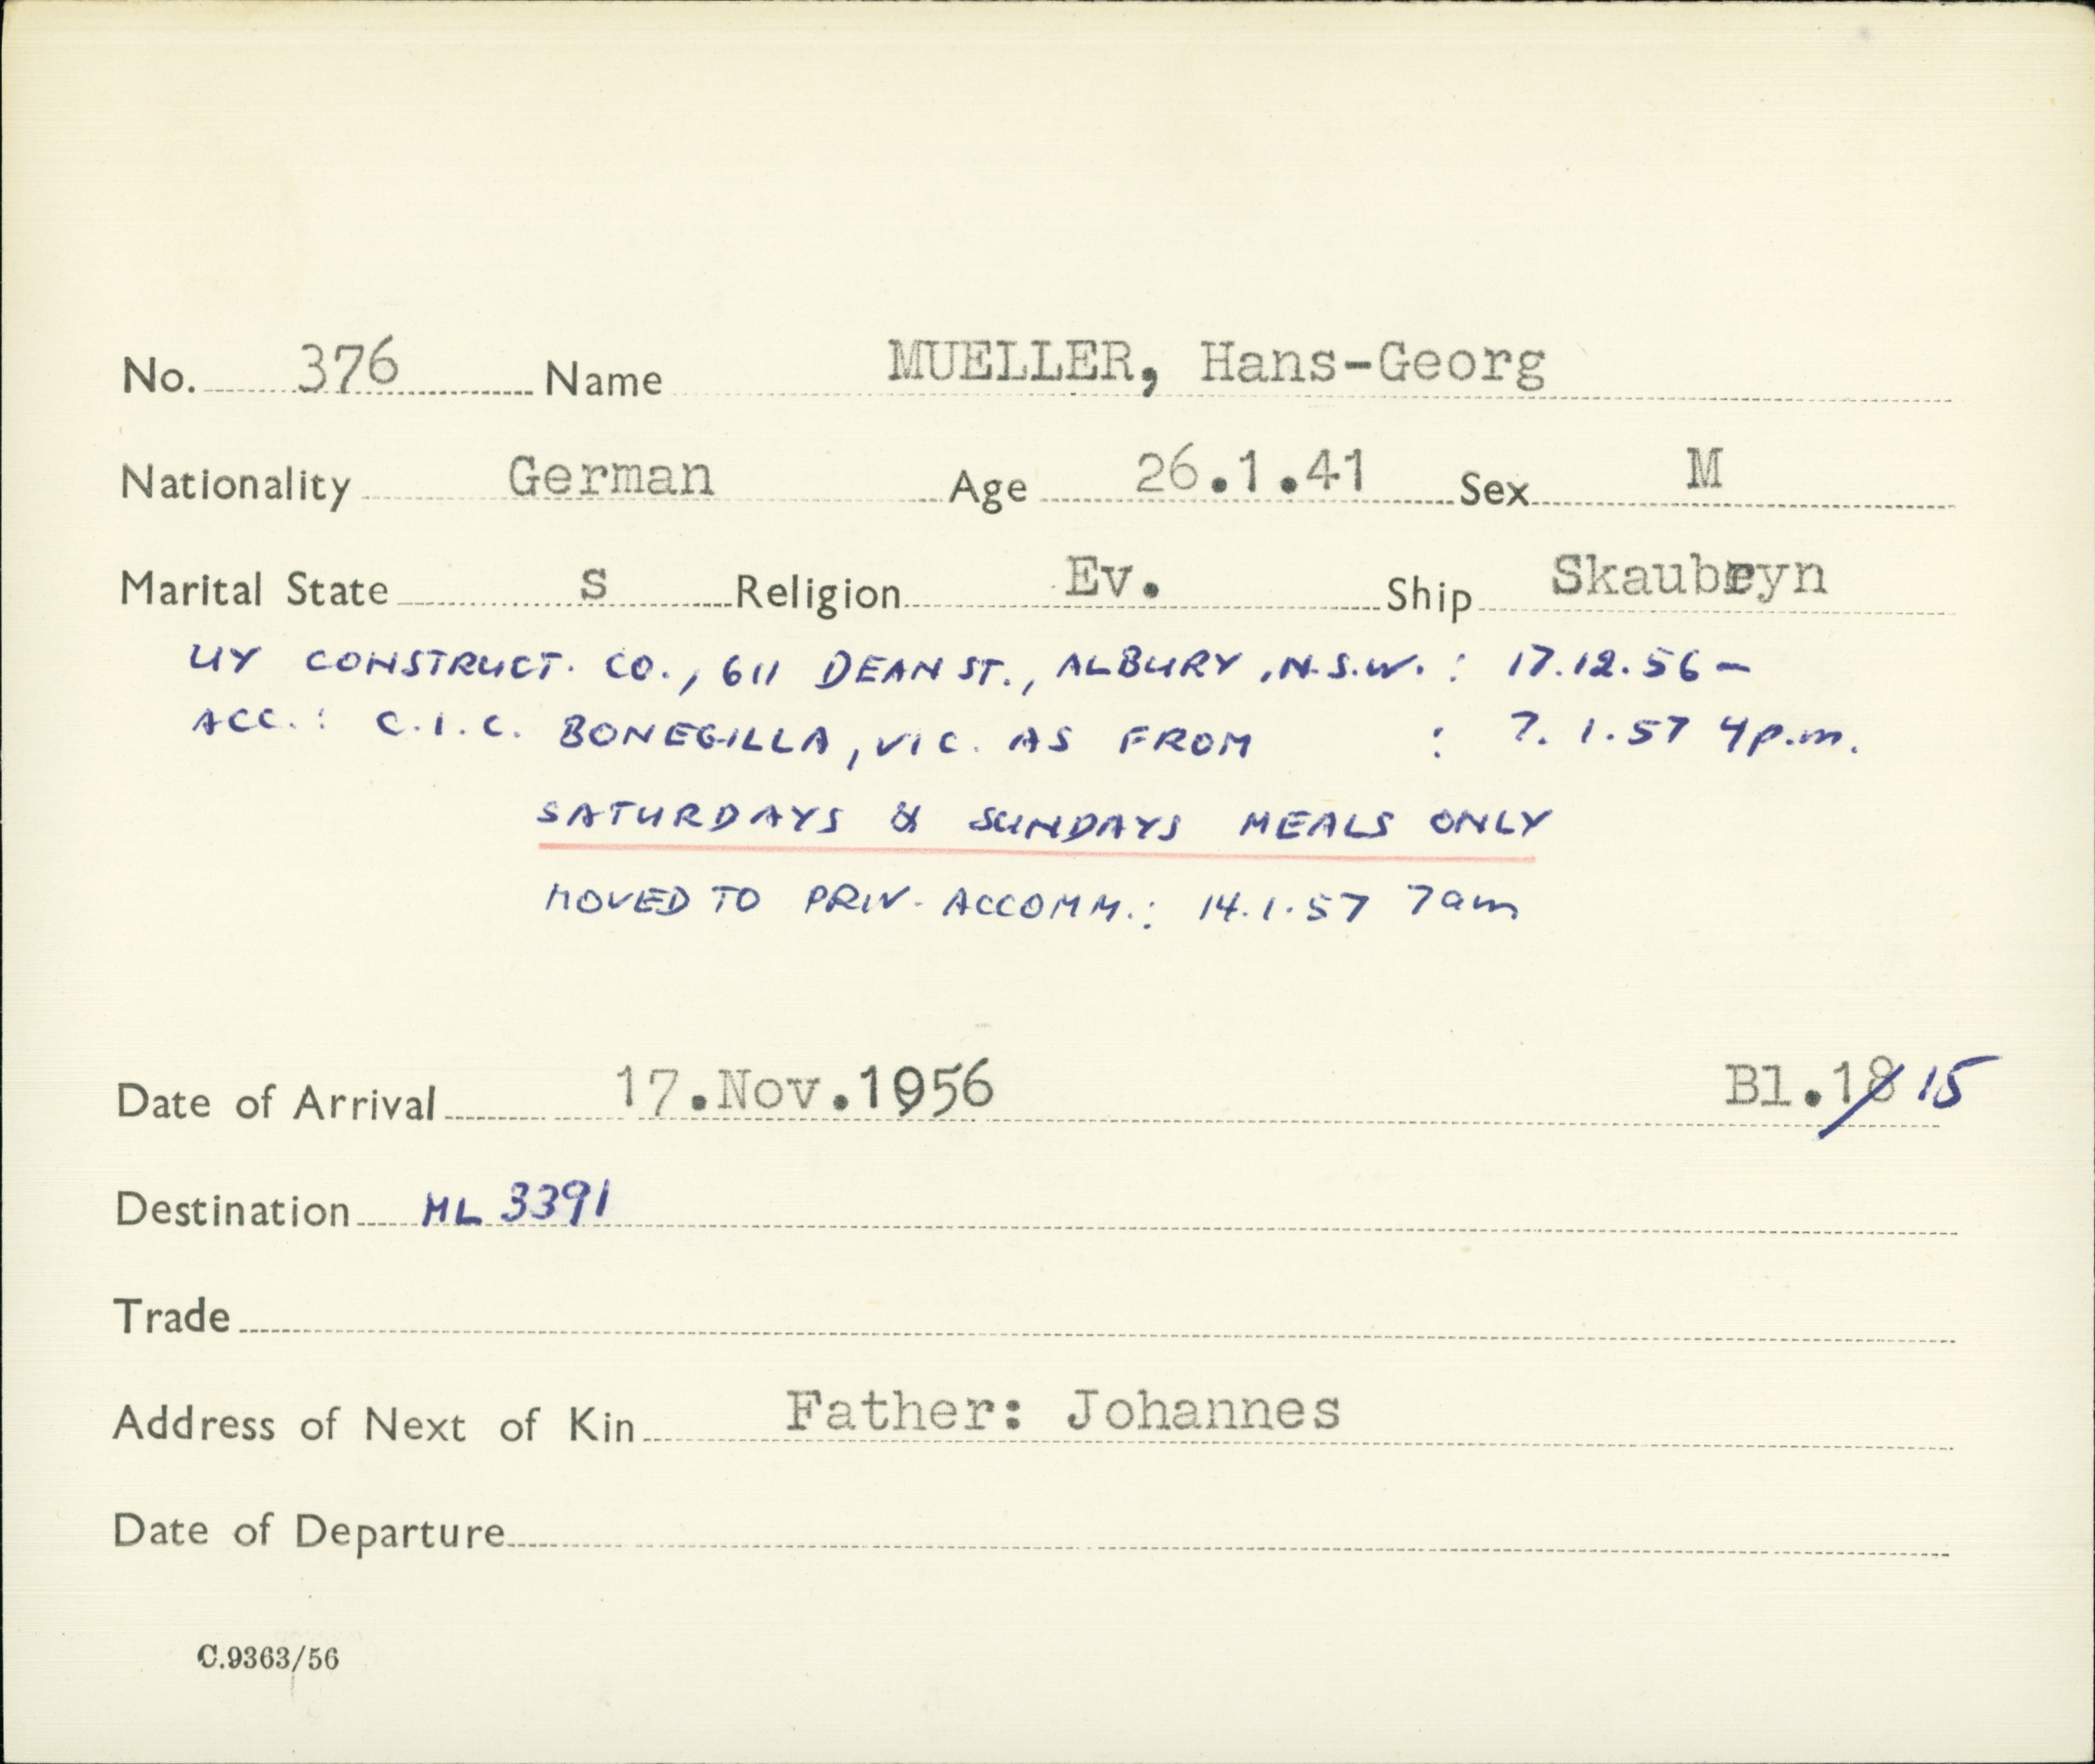 No. 376 Name MUELLER, Hans-Georg
Nationality German Age 26.1.41 Sex M
Marital State S Religion Ev. Ship Skaubryn
UY CONSTRUCT. CO., 611 DEAN ST., ALBURY, N.S.W. : 17.12.56 –
ACC. : C.I.C. BONEGILLA, VIC. AS FROM : 7. 1.57 4p.m.
SATURDAYS & SUNDAYS MEALS ONLY
MOVED TO PRIV. ACCOMM.: 14.1.57 7am
Date of Arrival 17.Nov.1956 Bl.18 15
Destination ML 3391
Trade
Address of Next of Kin Father: Johannes
Date of Departure
C.9363/56